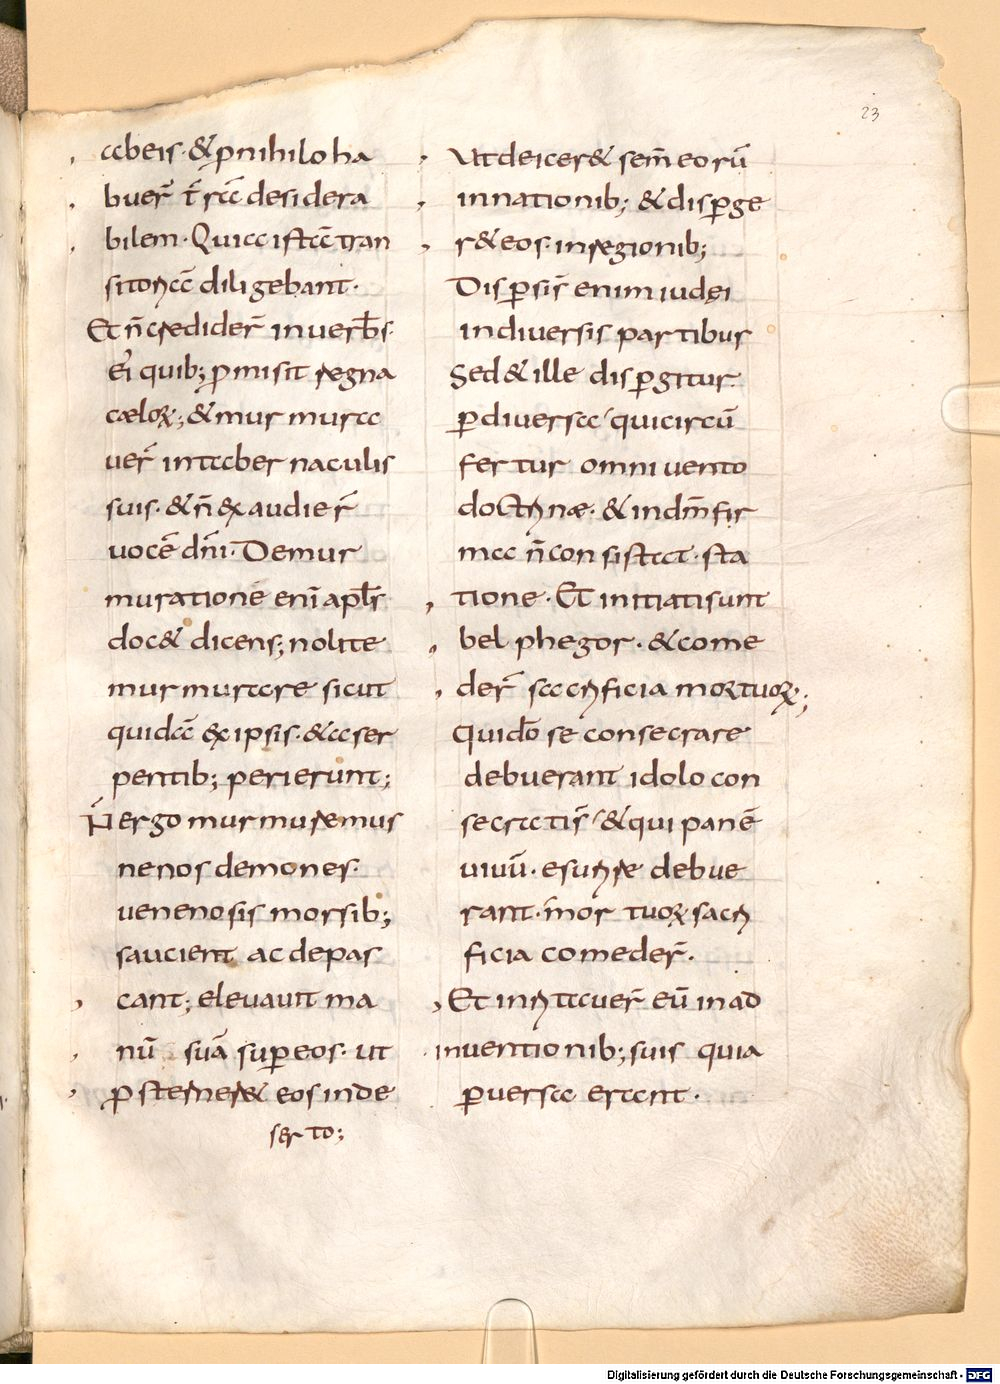 23
abeis · & ꝑ nihilo ha
buer̄ t̄rā desidera
bilem · Quia istā tran
sitoria diligebant ·
Et n̄ crediderᷓ in uerbīs ·
ei quib; ꝓmisit regna
cælorꝝ; & mur mura
uer̄ in taber naculis
suis · & n̄ exaudier̄
uocē dn̄i · De mur
muratione enī apłs
doc& dicens; nolite
murmurare sicut
quidā ex ipsis · & a ser
pentib; perierunt;
N ergo murmuremus
ne nos demones ·
uenenosis morsib;
saucient ac depas
cant; eleuauit ma
nū suā super eos · ut
ꝓsterner& eos in de
serto;
Ut deicer& sem̄ eorū
in nationib; & disꝑge
r& eos · in regionib;
Disꝑsis̄ enim iudei
in diuersis partibus
Sed & ille disꝑgitur
ꝑ diuersa qui circū
fertur omni uento
doctrinæ · & in dn̄m fir
ma n̄ consistat · sta
tione · Et initiati sunt
bel phegor · & come
der̄ sacrificia mortuoꝝ;
Qui dō se consecrare
debuerant idolo con
secratis̄ & qui panē
uiuū · esurire debue
rant · mortuoꝝ sacri
ficia comeder̄ ·
Et inritauer̄ eū in ad
inuentionib; suis quia
ꝑuersa erant ·
Digitalisierung gefördert durch die Deutsche Forschungsgemeinschaft - DFG